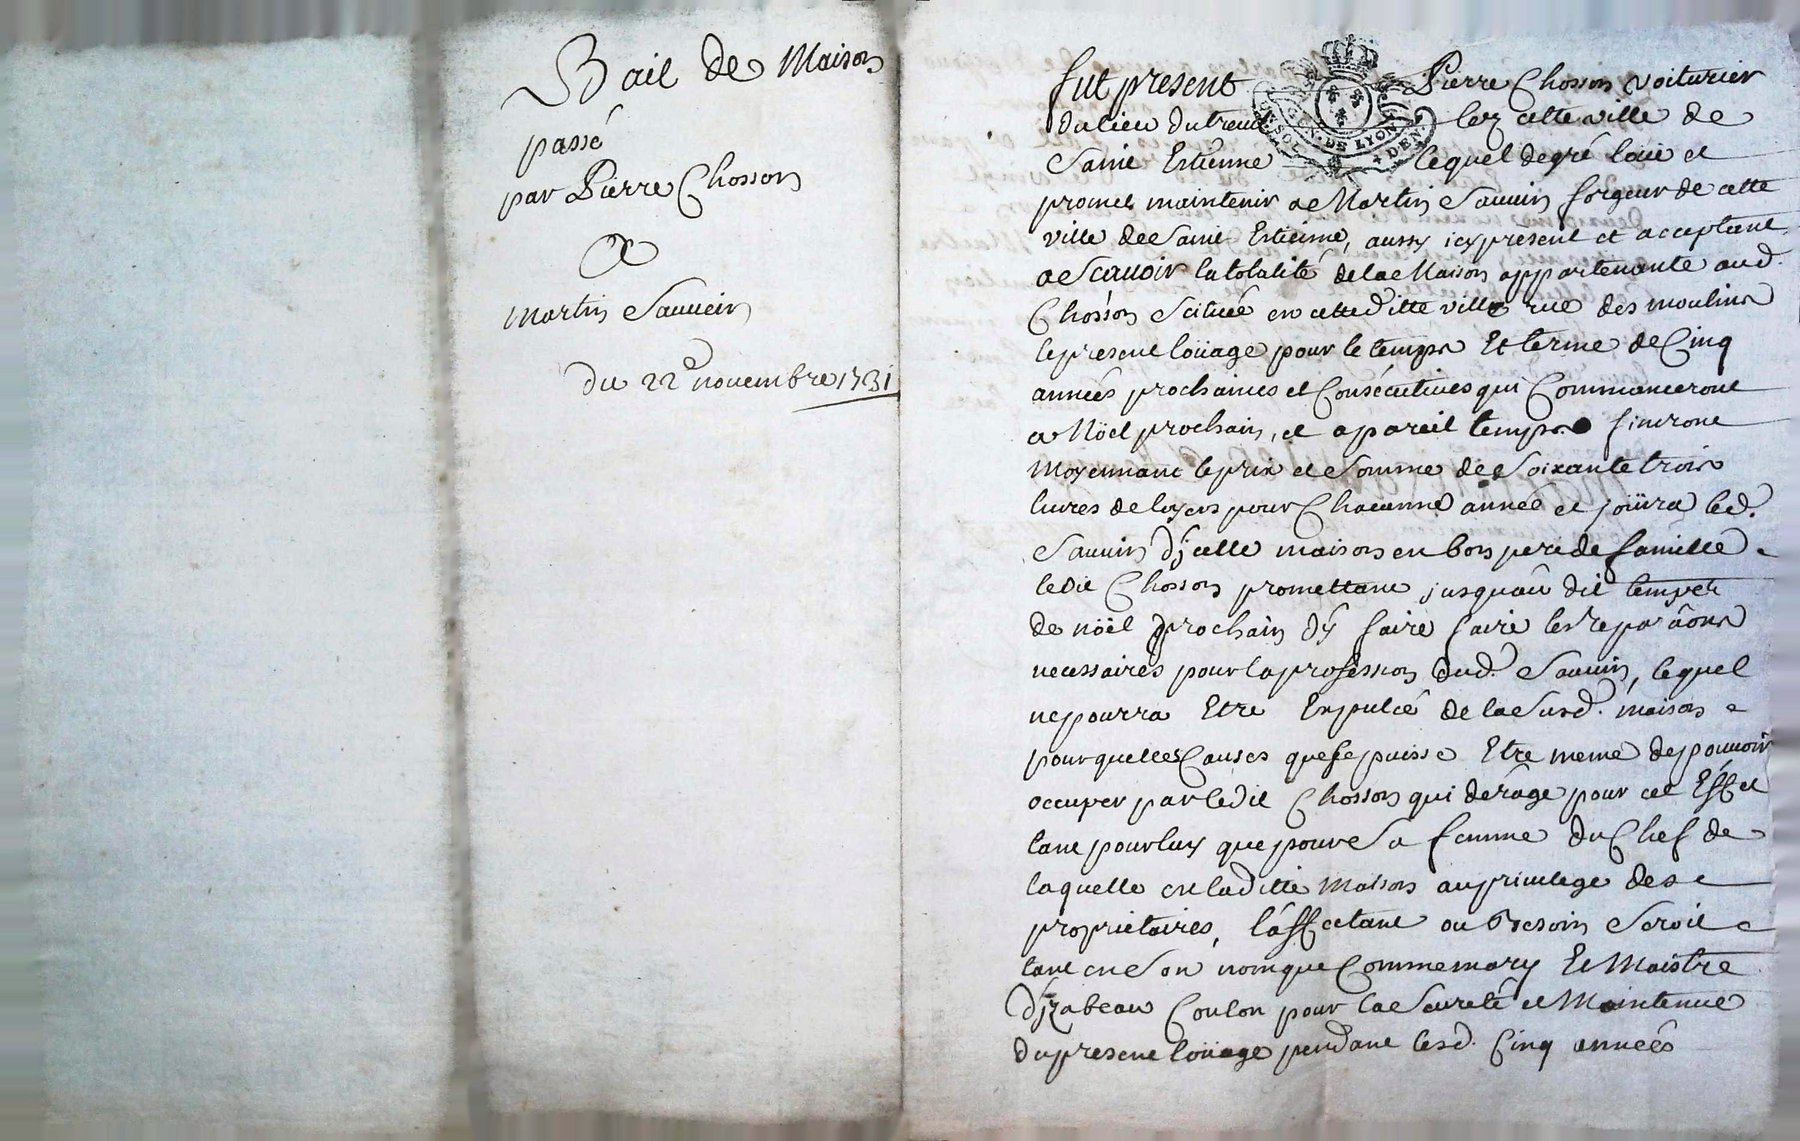 Bail de Maison
passé
par Pierre Chosson
A
Martin Sauvein
du 22e novembre 1731
fut present Pierre Chosson voiturier
du lieu du treuil lez cette ville de
Saint Estienne lequel de gré loüe et
promet maintenir a Martin Sauvin forgeur de cette
ville de Saint Estienne, aussy icy present et acceptant
a Scavoir la totalité de la Maison appartenante aud.
Chosson Scituée en cette ditte ville rue des moulins
le present loüage pour le temps Et terme de Cinq
années prochaines et Consécutives qui Commanceront
a Nöel prochain, et a pareil temps finiront
Moyennant le prix et Somme de Soixante trois
livres de loyers pour Chacunne année et joüira led.
Sauvin d'jcelle maison en bon pere de famille
ledit Chosson promettant jusqu'au dit temps
de nöel prochain d'y faire faire les reparaôns
necessaires pour la profession dud. Sauvin, lequel
ne pourra Etre Expulcé de la Susd. maison
pour quelles Causes que se puisse Etre meme de pouvoir
occuper par ledit Chosson qui déroge pour cet Effet
tant pour luy que pour Sa femme du Chef de
laquelle est laditte Maison au privilege des
proprietaires, l'affectant ou Besoin Seroit
tant en Son nom que Comme mary Et Maistre
d'jzabeau Coulon pour la Sureté et Maintenue
du present loüage pendant lesd. Cinq années
SOL GEN. DE LYON DEN.